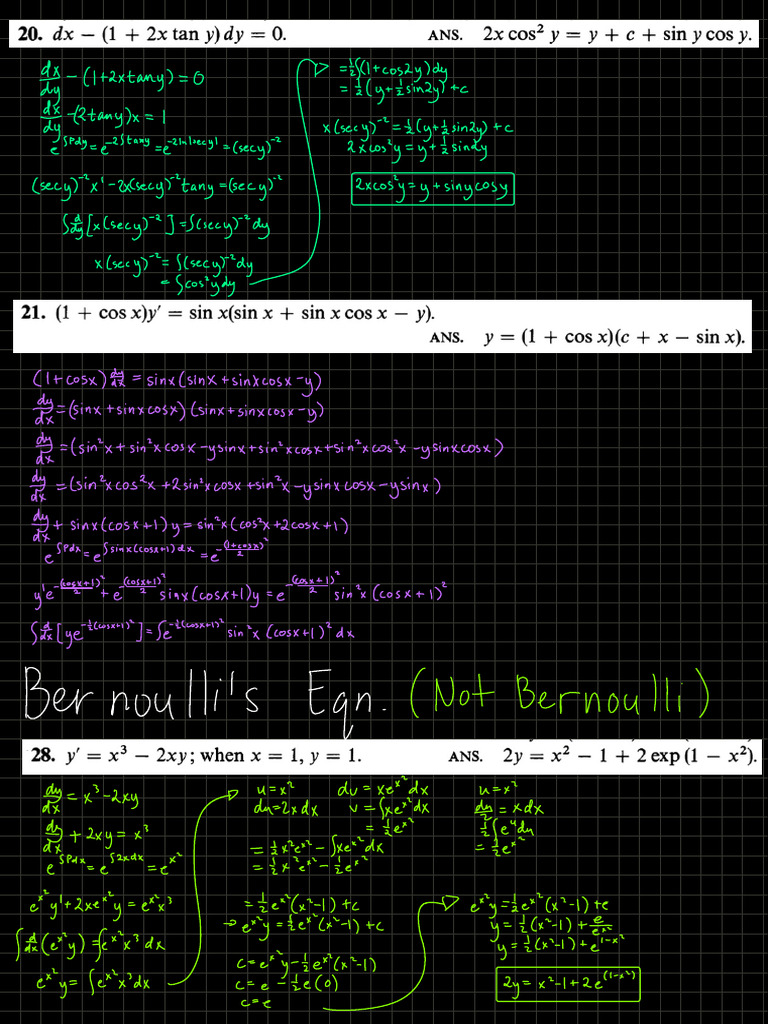 20. dx − (1 + 2x tan y) dy = 0. ANS. 2x cos² y = y + c + sin y cos y.
dx/dy − (1+2xtany) = 0
dx/dy − (2tany)x = 1
e^∫Pdy = e^−2∫tany = e^−2ln|secy| = (secy)^−2
(secy)^−2 x' − 2x(secy)^−2 tany = (secy)^−2
∫d/dy[x(secy)^−2] = ∫(secy)^−2 dy
x(secy)^−2 = ∫(secy)^−2 dy
= ∫cos²ydy
= ½∫(1+cos2y)dy
= ½(y+½sin2y)+c
x(secy)^−2 = ½(y+½sin2y)+c
2xcos²y = y+½sin2y
2xcos²y = y + sinycosy
21. (1 + cos x)y′ = sin x(sin x + sin x cos x − y).
ANS. y = (1 + cos x)(c + x − sin x).
(1+cosx) dy/dx = sinx(sinx+sinxcosx−y)
dy/dx = (sinx+sinxcosx)(sinx+sinxcosx−y)
dy/dx = (sin²x+sin²xcosx−ysinx+sin²xcosx+sin²xcos²x−ysinxcosx)
dy/dx = (sin²xcos²x+2sin²xcosx+sin²x−ysinxcosx−ysinx)
dy/dx + sinx(cosx+1)y = sin²x(cos²x+2cosx+1)
e^∫Pdx = e^∫sinx(cosx+1)dx = e^−(1+cosx)²/2
y'e^−(cosx+1)²/2 + e^−(cosx+1)²/2 sinx(cosx+1)y = e^−(cosx+1)²/2 sin²x(cosx+1)²
∫d/dx[ye^−½(cosx+1)²] = ∫e^−½(cosx+1)² sin²x(cosx+1)²dx
Bernoulli's Eqn. (Not Bernoulli)
28. y′ = x³ − 2xy; when x = 1, y = 1. ANS. 2y = x² − 1 + 2 exp (1 − x²).
dy/dx = x³−2xy
dy/dx + 2xy = x³
e^∫Pdx = e^∫2xdx = e^x²
e^x² y' + 2xe^x² y = e^x² x³
∫d/dx(e^x² y) = ∫e^x² x³ dx
e^x² y = ∫e^x² x³dx
u=x² dv=xe^x² dx
du=2xdx v=∫xe^x² dx
= ½e^x²
= ½x²e^x² − ∫xe^x² dx
= ½x²e^x² − ½e^x²
= ½e^x²(x²−1)+c
→ e^x² y = ½e^x²(x²−1)+c
c = e^x² y − ½e^x²(x²−1)
c = e − ½e(0)
c = e
u=x²
du/2 = xdx
½∫e^u du
= ½e^x²
e^x² y = ½e^x²(x²−1)+e
y = ½(x²−1)+e/e^x²
y = ½(x²−1)+e^1−x²
2y = x²−1+2e^(1−x²)